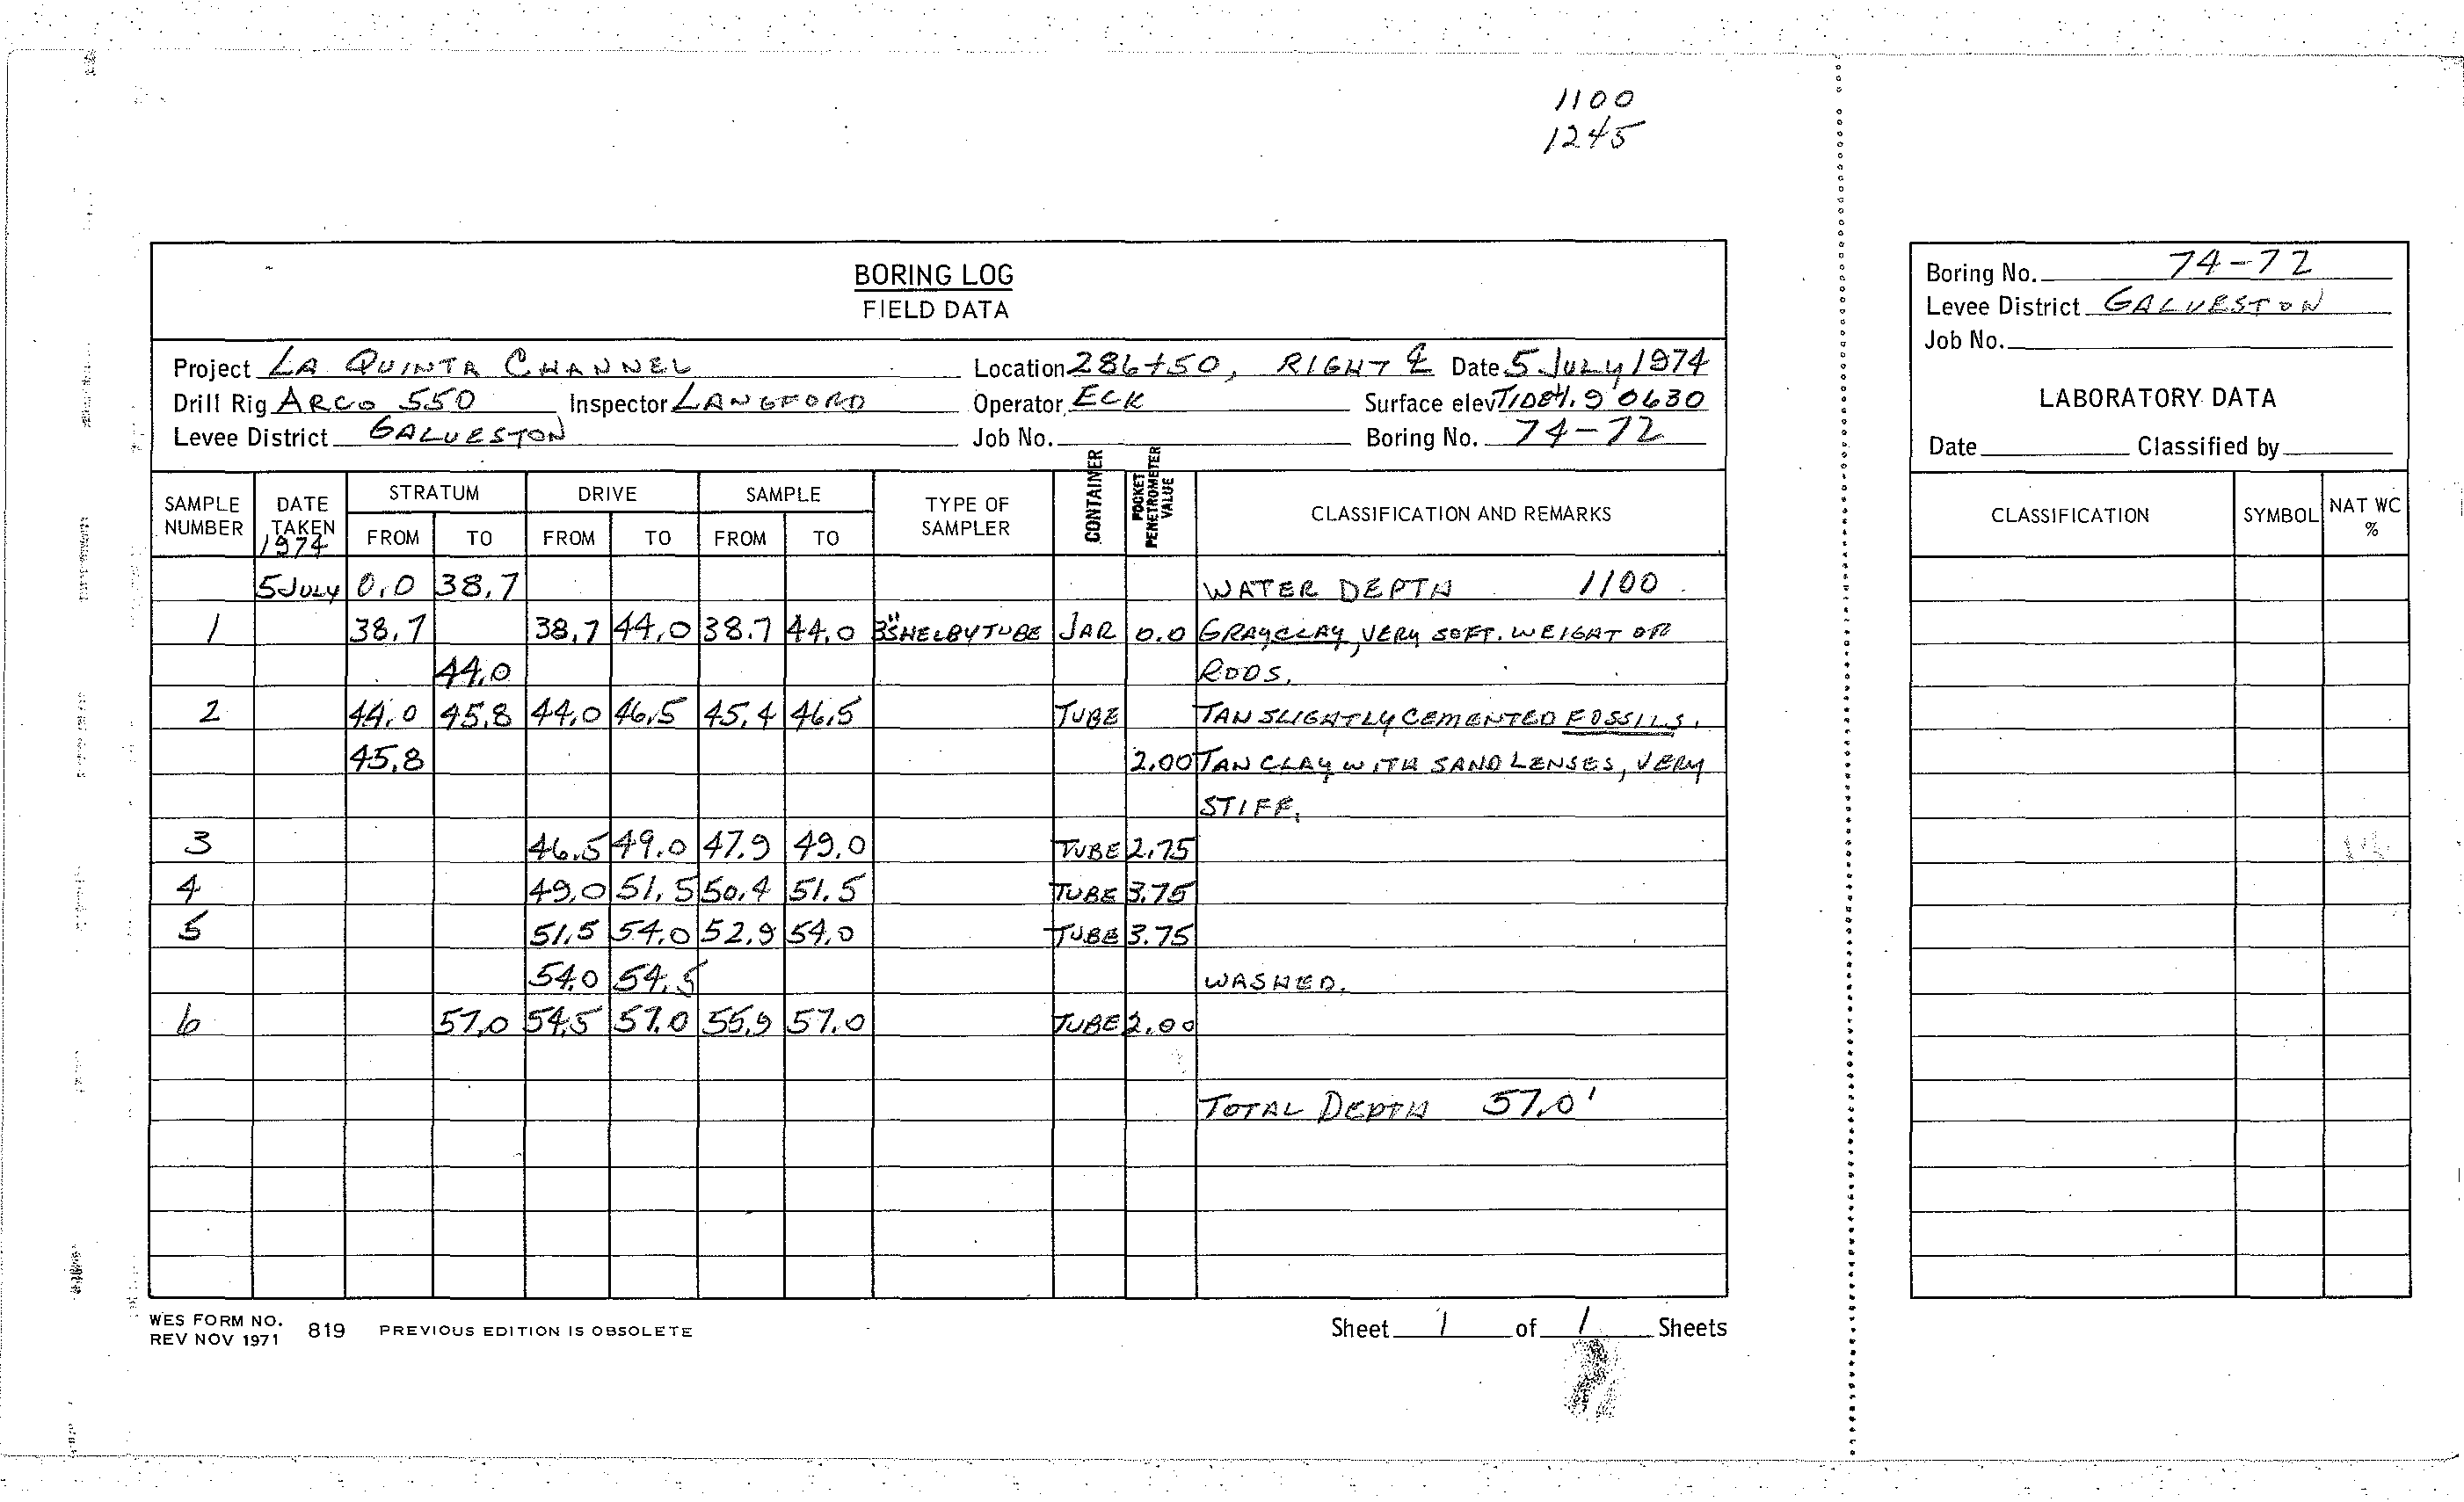 1100
1245
BORING LOG
FIELD DATA
Project LA QUINTA CHANNEL Location 286+50, RIGHT ℄ Date 5 JULY 1974
Drill Rig ARCO 550 Inspector LANGFORD Operator ECK Surface elev TIDE 1.9 0630
Levee District GALVESTON Job No. Boring No. 74-72
SAMPLE NUMBER DATE TAKEN 1974 STRATUM FROM TO DRIVE FROM TO SAMPLE FROM TO TYPE OF SAMPLER CONTAINER POCKET PENETROMETER VALUE CLASSIFICATION AND REMARKS
5 JULY 0.0 38.7 WATER DEPTH 1100
1 38.7 38.7 44.0 38.7 44.0 3" SHELBY TUBE JAR 0.0 GRAY CLAY, VERY SOFT. WEIGHT OF
44.0 RODS.
2 44.0 45.8 44.0 46.5 45.4 46.5 TUBE TAN SLIGHTLY CEMENTED FOSSILS.
45.8 2.00 TAN CLAY WITH SAND LENSES, VERY
STIFF.
3 46.5 49.0 47.9 49.0 TUBE 2.75
4 49.0 51.5 50.4 51.5 TUBE 3.75
5 51.5 54.0 52.9 54.0 TUBE 3.75
54.0 54.5 WASHED.
6 57.0 54.5 57.0 55.9 57.0 TUBE 2.00
TOTAL DEPTH 57.0'
WES FORM NO. 819 PREVIOUS EDITION IS OBSOLETE
REV NOV 1971
Sheet 1 of 1 Sheets
Boring No. 74-72
Levee District GALVESTON
Job No.
LABORATORY DATA
Date Classified by
CLASSIFICATION SYMBOL NAT WC %